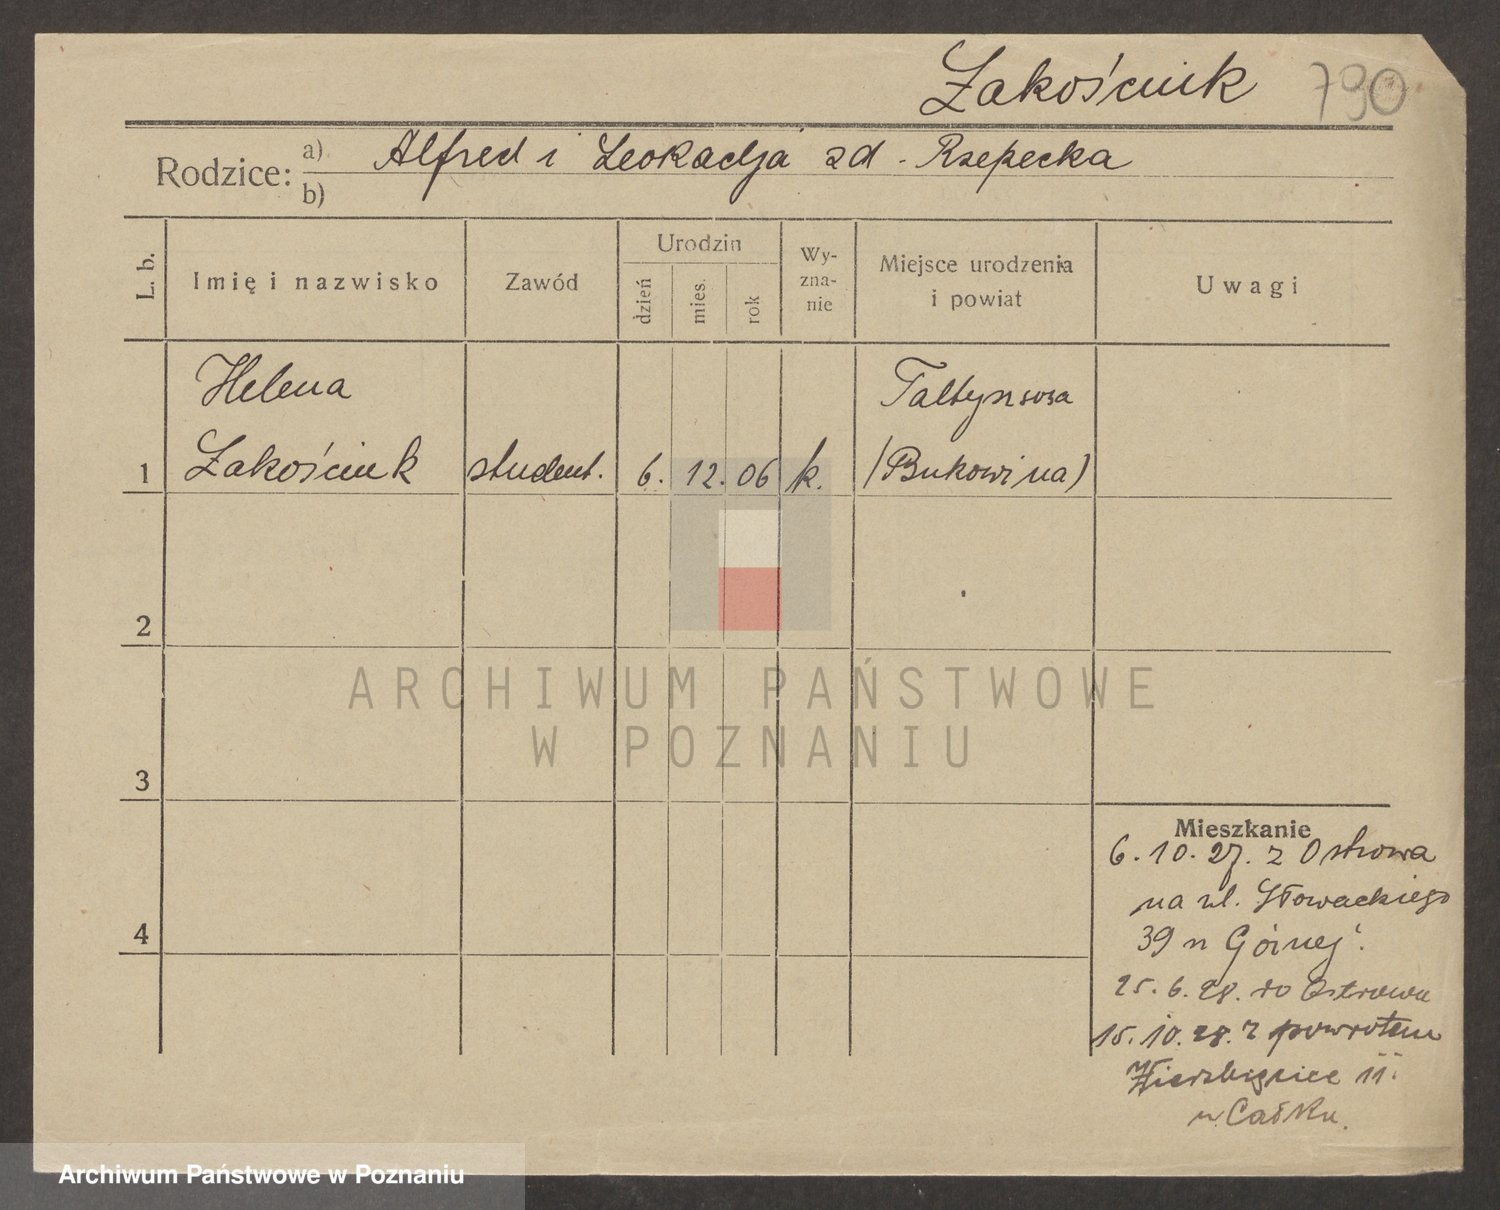 Żakościuk 790
Rodzice:
a) Alfred i Leokadja zd. Rzepecka
b)
L. b.
Imię i nazwisko
Zawód
Urodzin
dzień
mies.
rok
Wy-
zna-
nie
Miejsce urodzenia
i powiat
Uwagi
Helena
1 Żakościuk student. 6. 12. 06 k.
(Bukowina)
2
3
4
ARCHIWUM PAŃSTWOWE
W POZNANIU
Mieszkanie
6.10.27. z Ostrowa
na ul. Słowackiego
39 u Górnej.
25.6.28. do Ostrowa
15.10.28. z powrotem
Wierzbięcice 11.
u
Archiwum Państwowe w Poznaniu